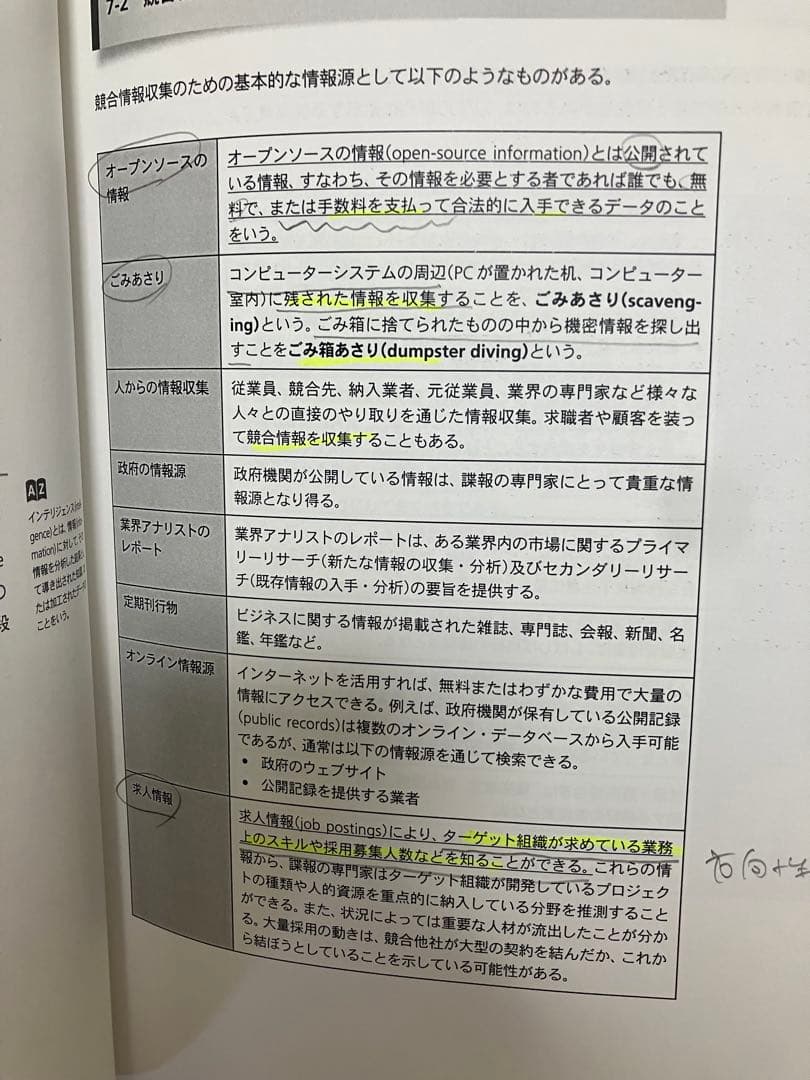 7-2
競合情報収集のための基本的な情報源として以下のようなものがある。
オープンソースの
情報
オープンソースの情報(open-source information)とは公開されて
いる情報、すなわち、その情報を必要とする者であれば誰でも、無
料で、または手数料を支払って合法的に入手できるデータのこと
をいう。
ごみあさり
コンピューターシステムの周辺(PCが置かれた机、コンピューター
室内)に残された情報を収集することを、ごみあさり(scaveng-
ing)という。ごみ箱に捨てられたものの中から機密情報を探し出
すことをごみ箱あさり(dumpster diving)という。
人からの情報収集
従業員、競合先、納入業者、元従業員、業界の専門家など様々な
人々との直接のやり取りを通じた情報収集。求職者や顧客を装っ
て競合情報を収集することもある。
政府の情報源
政府機関が公開している情報は、諜報の専門家にとって貴重な情
報源となり得る。
業界アナリストの
レポート
業界アナリストのレポートは、ある業界内の市場に関するプライマ
リーリサーチ(新たな情報の収集・分析)及びセカンダリーリサー
チ(既存情報の入手・分析)の要旨を提供する。
定期刊行物
ビジネスに関する情報が掲載された雑誌、専門誌、会報、新聞、名
鑑、年鑑など。
オンライン情報源
インターネットを活用すれば、無料またはわずかな費用で大量の
情報にアクセスできる。例えば、政府機関が保有している公開記録
(public records)は複数のオンライン・データベースから入手可能
であるが、通常は以下の情報源を通じて検索できる。
• 政府のウェブサイト
• 公開記録を提供する業者
求人情報
求人情報(job postings)により、ターゲット組織が求めている業務
上のスキルや採用募集人数などを知ることができる。これらの情
報から、諜報の専門家はターゲット組織が開発しているプロジェク
トの種類や人的資源を重点的に納入している分野を推測すること
ができる。また、状況によっては重要な人材が流出したことが分か
る。大量採用の動きは、競合他社が大型の契約を結んだか、これか
ら結ぼうとしていることを示している可能性がある。
方向性
AZ
インテリジェンス
gence)とは、情報
mation)に対して、
情報を分析した結果
て導き出された
たは加工されたデー
ことをいう。
段